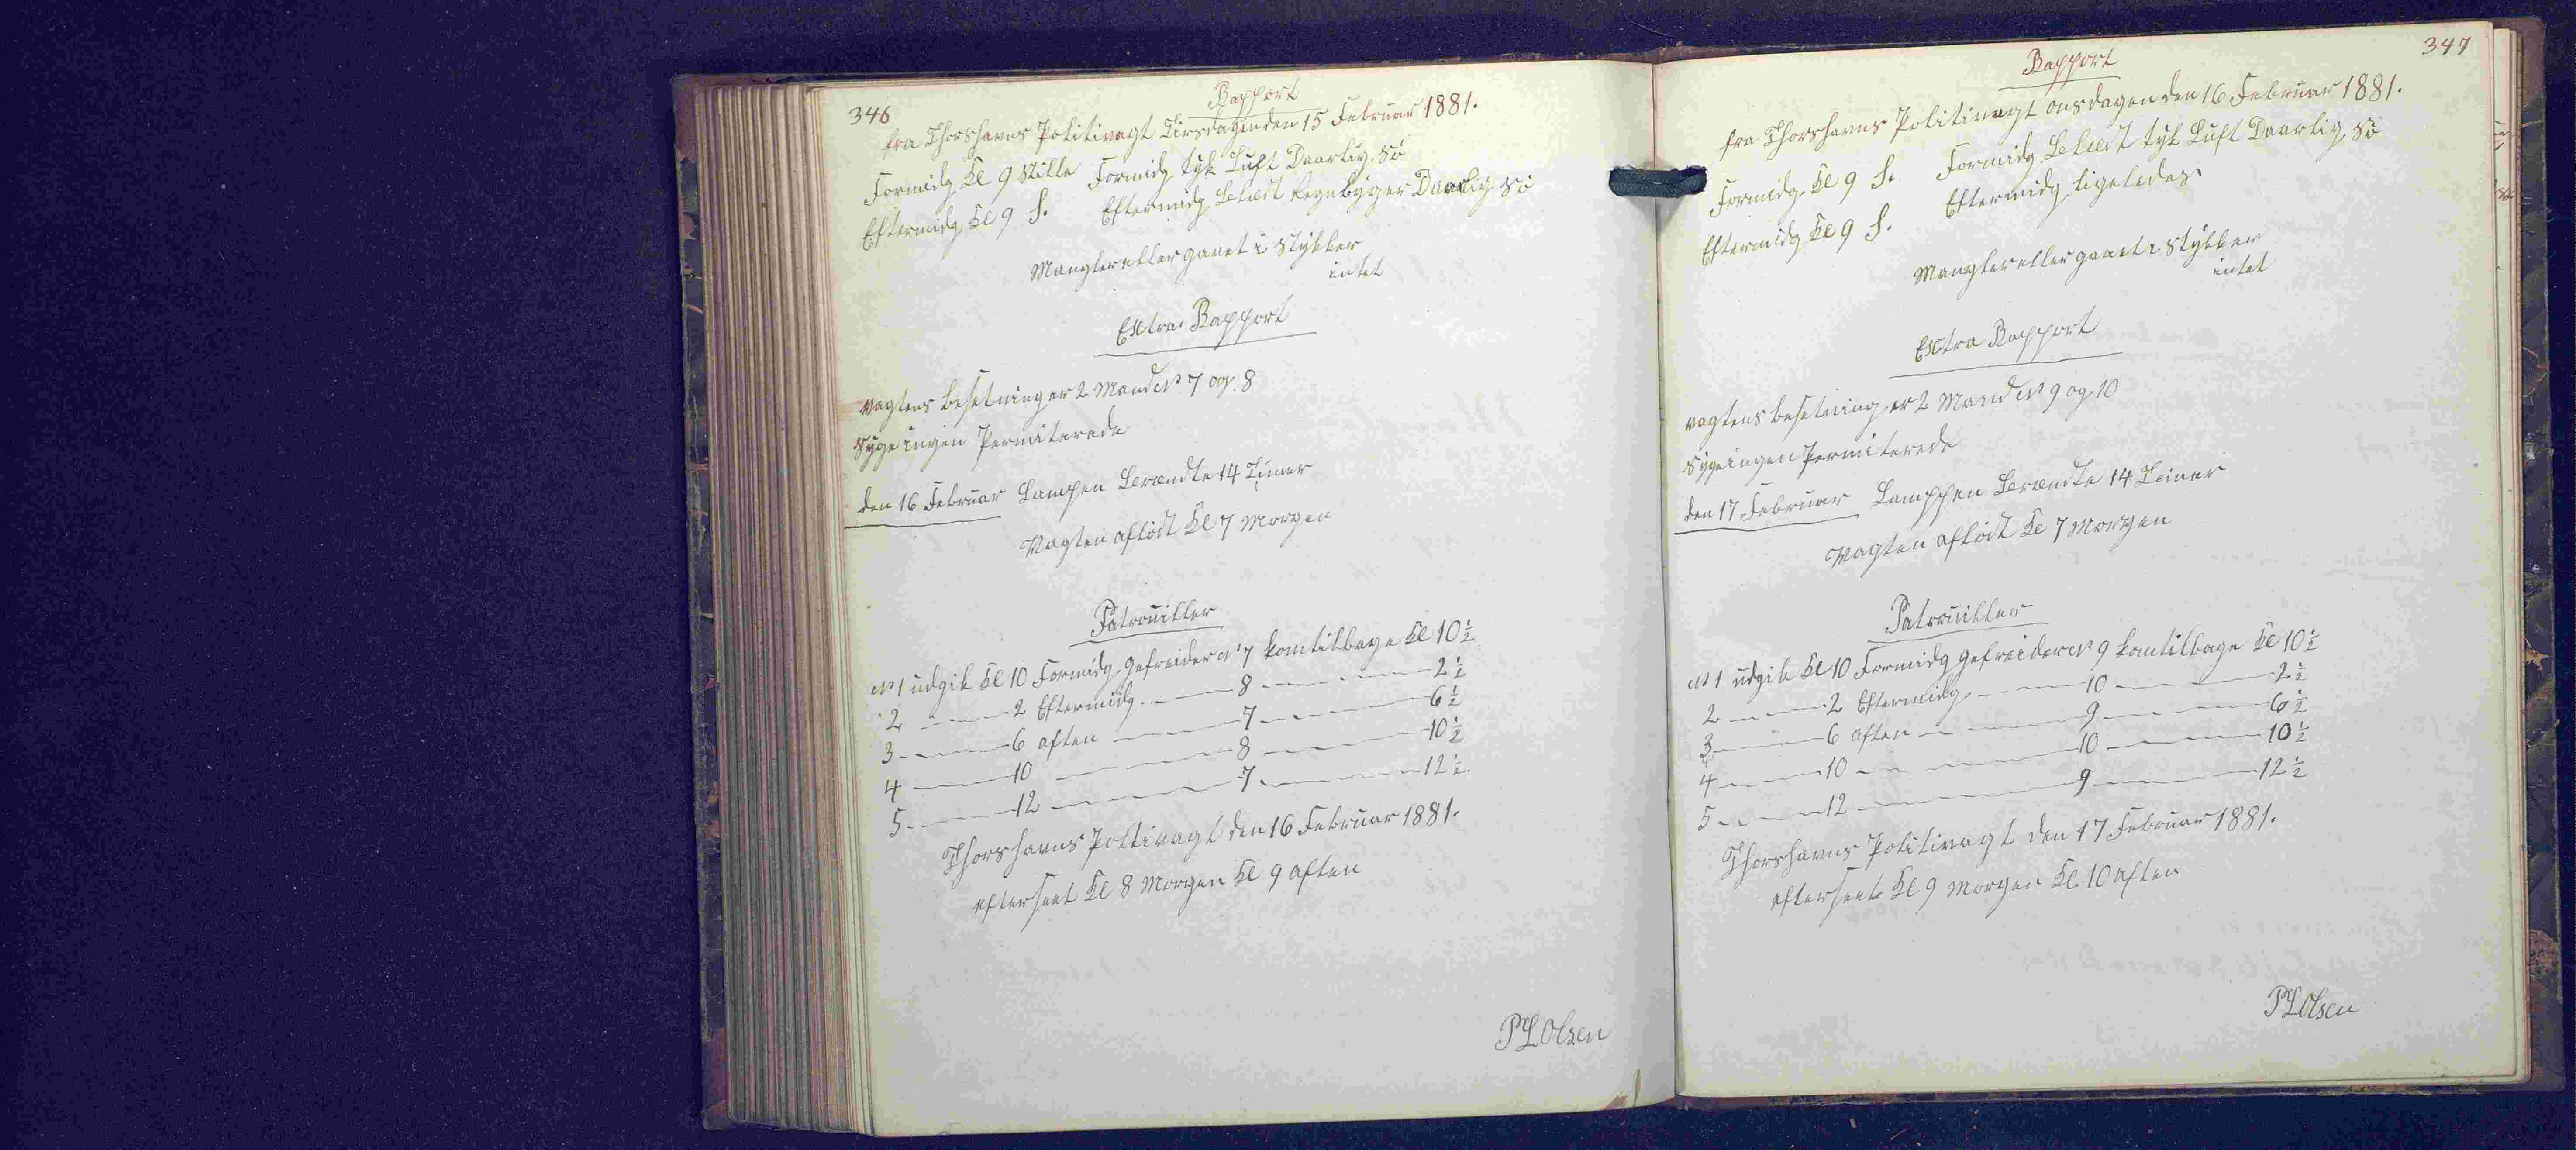 346
Rapport
fra Thorshavns Politivagt Tirsdagen den 15 Februar 1881.
Formidg Kl 9 Stille Formidg tyk Luft Daarlig Sö
Eftermidg Kl 9 S. Eftermidg Beluft Regnbyger Daarlig Sö
Mangler eller gaaet i Stykker
intet
Extra Rapport
Vagtens besetning er 2 Mand No 7 og 8
Syge ingen Permiterede
den 16 Februar Lampen Brændte 14 Timer
Vagten aflöst Kl 7 Morgen
Patrouiller
No 1 udgik Kl 10 Formidg Gefreider No 7 kom tilbage Kl 10 1/2
2 — 2 Eftermidg — 8 — 2 1/2
3 — 6 aften — 7 — 6 1/2
4 — 10 — 8 — 10 1/2
5 — 12 — 7 — 12 1/2
Thorshavns Politivagt den 16 Februar 1881.
efterseet Kl 8 Morgen Kl 9 aften
PLOlsen
347
Rapport
fra Thorshavns Politivagt onsdagen den 16 Februar 1881.
Formidg Kl 9 S. Formidg tyk Luft Daarlig Sö
Eftermidg Kl 9 S. Eftermidg ligeledes
Mangler eller gaaet i Stykker
intet
Extra Rapport
vagtens besetning er 2 Mand No 9 og 10
Syge ingen Permiterede
den 17 Februar Lamppen Brændte 14 Timer
Vagten aflöst Kl 7 Morgen
Patrouiller
No 1 udgik Kl 10 Formidg Gefreider No 9 kom tilbage Kl 10 1/2
2 — 2 Eftermidg — 10 — 2 1/2
3 — 6 aften — 9 — 6 1/2
4 — 10 — 10 — 10 1/2
5 — 12 — 9 — 12 1/2
Thorshavns Politivagt den 17 Februar 1881.
efterseet Kl 9 Morgen Kl 10 aften
PLOlsen